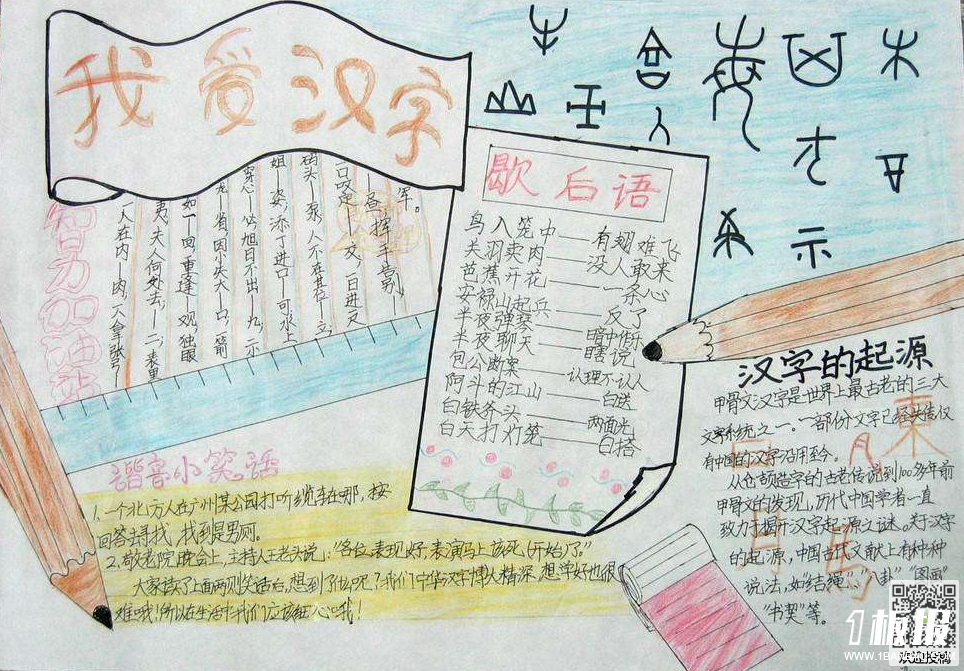 我爱汉字
智力加油站
军。
查一挥手告别，
一口咬定——交，一日进又
码头——泵，人不在其位——立，
姐——姿，添丁进口——可，水上
龙——省，因小失大——口，一箭
穿心——必，旭日不出——九，二示
如一——回，重逢——观，独眼
夷，夫人何处去，——二，表里
人在内——肉，一人拿张弓——
歇后语
鸟入笼中——有翅难飞
关羽卖肉——没人敢来
芭蕉开花——一条心
安禄山起兵——反了
半夜弹琴——暗中作乐
半夜聊天——瞎说
包公断案——认理不认人
阿斗的江山——白送
白铁斧头——两面光
白天打灯笼——白搭
谐音小笑话
1.一个北方人在广州某公园打听缆车在哪，按
回答去寻找，找到是男厕。
2.敬老院晚会上，主持人王老头说："各位表现好，表演马上该死（开始）了。"
大家读了上面两则笑话后，想到了什么呢？我们中华汉字博大精深，想学好也很
难哦！所以在生活中我们应该细心哦！
汉字的起源
甲骨文汉字是世界上最古老的三大
文字系统之一。一部份文字已经失传，仅
有中国的汉字沿用至今。
从仓颉造字的古老传说到100多年前
甲骨文的发现，历代中国学者一直
致力于揭开汉字起源之谜。关于汉字
的起源，中国古代文献上有种种
说法，如"结绳"、"八卦"、"图画"
"书契"等。
1板报
WWW.1BANBAO.COM